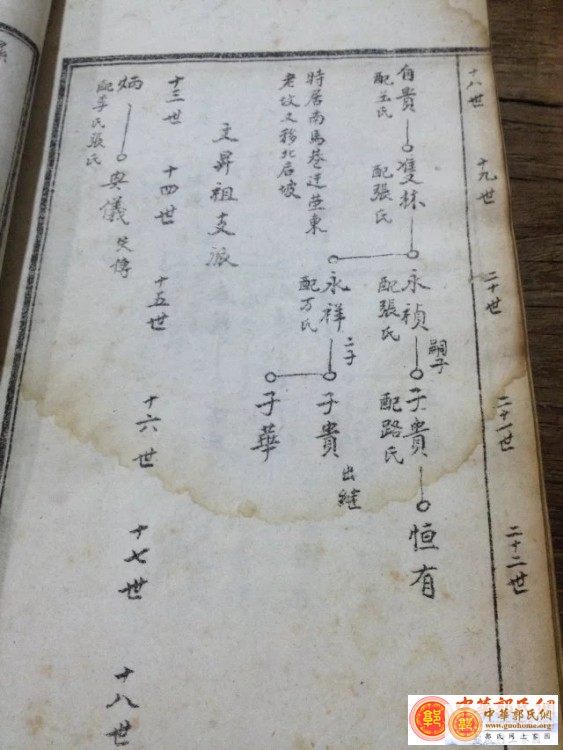 十八世
十九世
二十世
二十一世
二十二世
自貴
配孟氏
雙林
配張氏
永禎
配張氏
嗣子
子貴
配路氏
恒有
永祥
配万氏
二子
子貴
出継
子華
特居南馬巷迁莊東
老坟又移北后坡
文昇祖支派
十三世
十四世
十五世
十六世
十七世
十八世
炳
配李氏張氏
興儀
失傳
中華郭氏網
www.guohome.org
郭氏网上家园